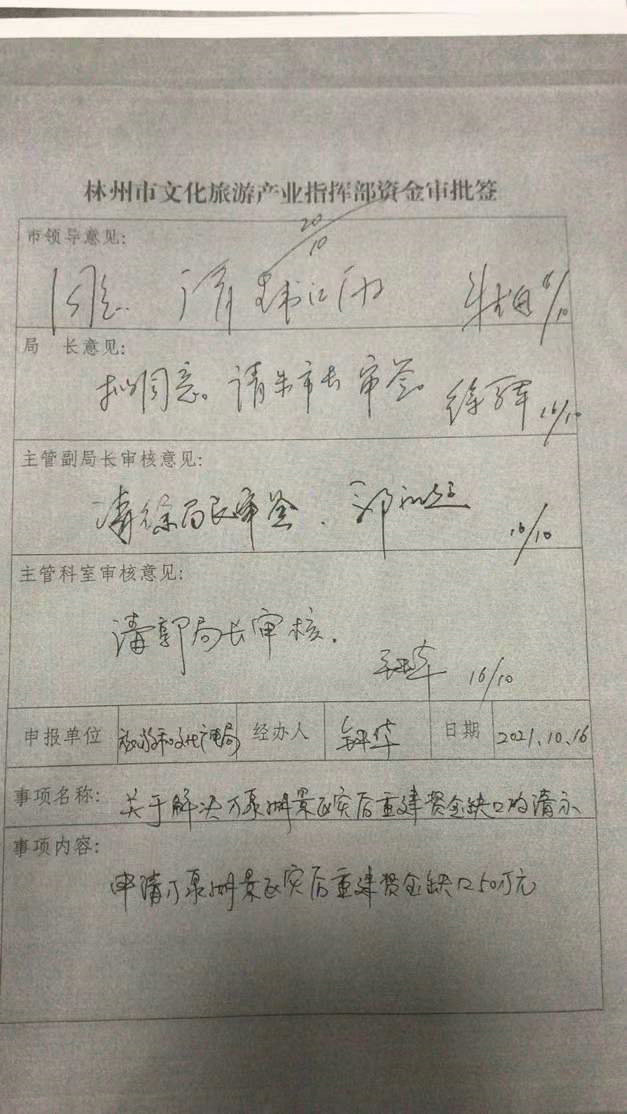 林州市文化旅游产业指挥部资金审批签
20/10
市领导意见:
同意. 请
局 长意见:
拟同意。请朱市长审签。 徐军 16/10
主管副局长审核意见:
请徐局长审签. 郭 16/10
主管科室审核意见:
请郭局长审核.
16/10
申报单位 和文化广电局 经办人 华 日期 2021.10.16
事项名称: 关于解决万泉湖景区灾后重建资金缺口的请示
事项内容:
申请万泉湖景区灾后重建资金缺口50万元